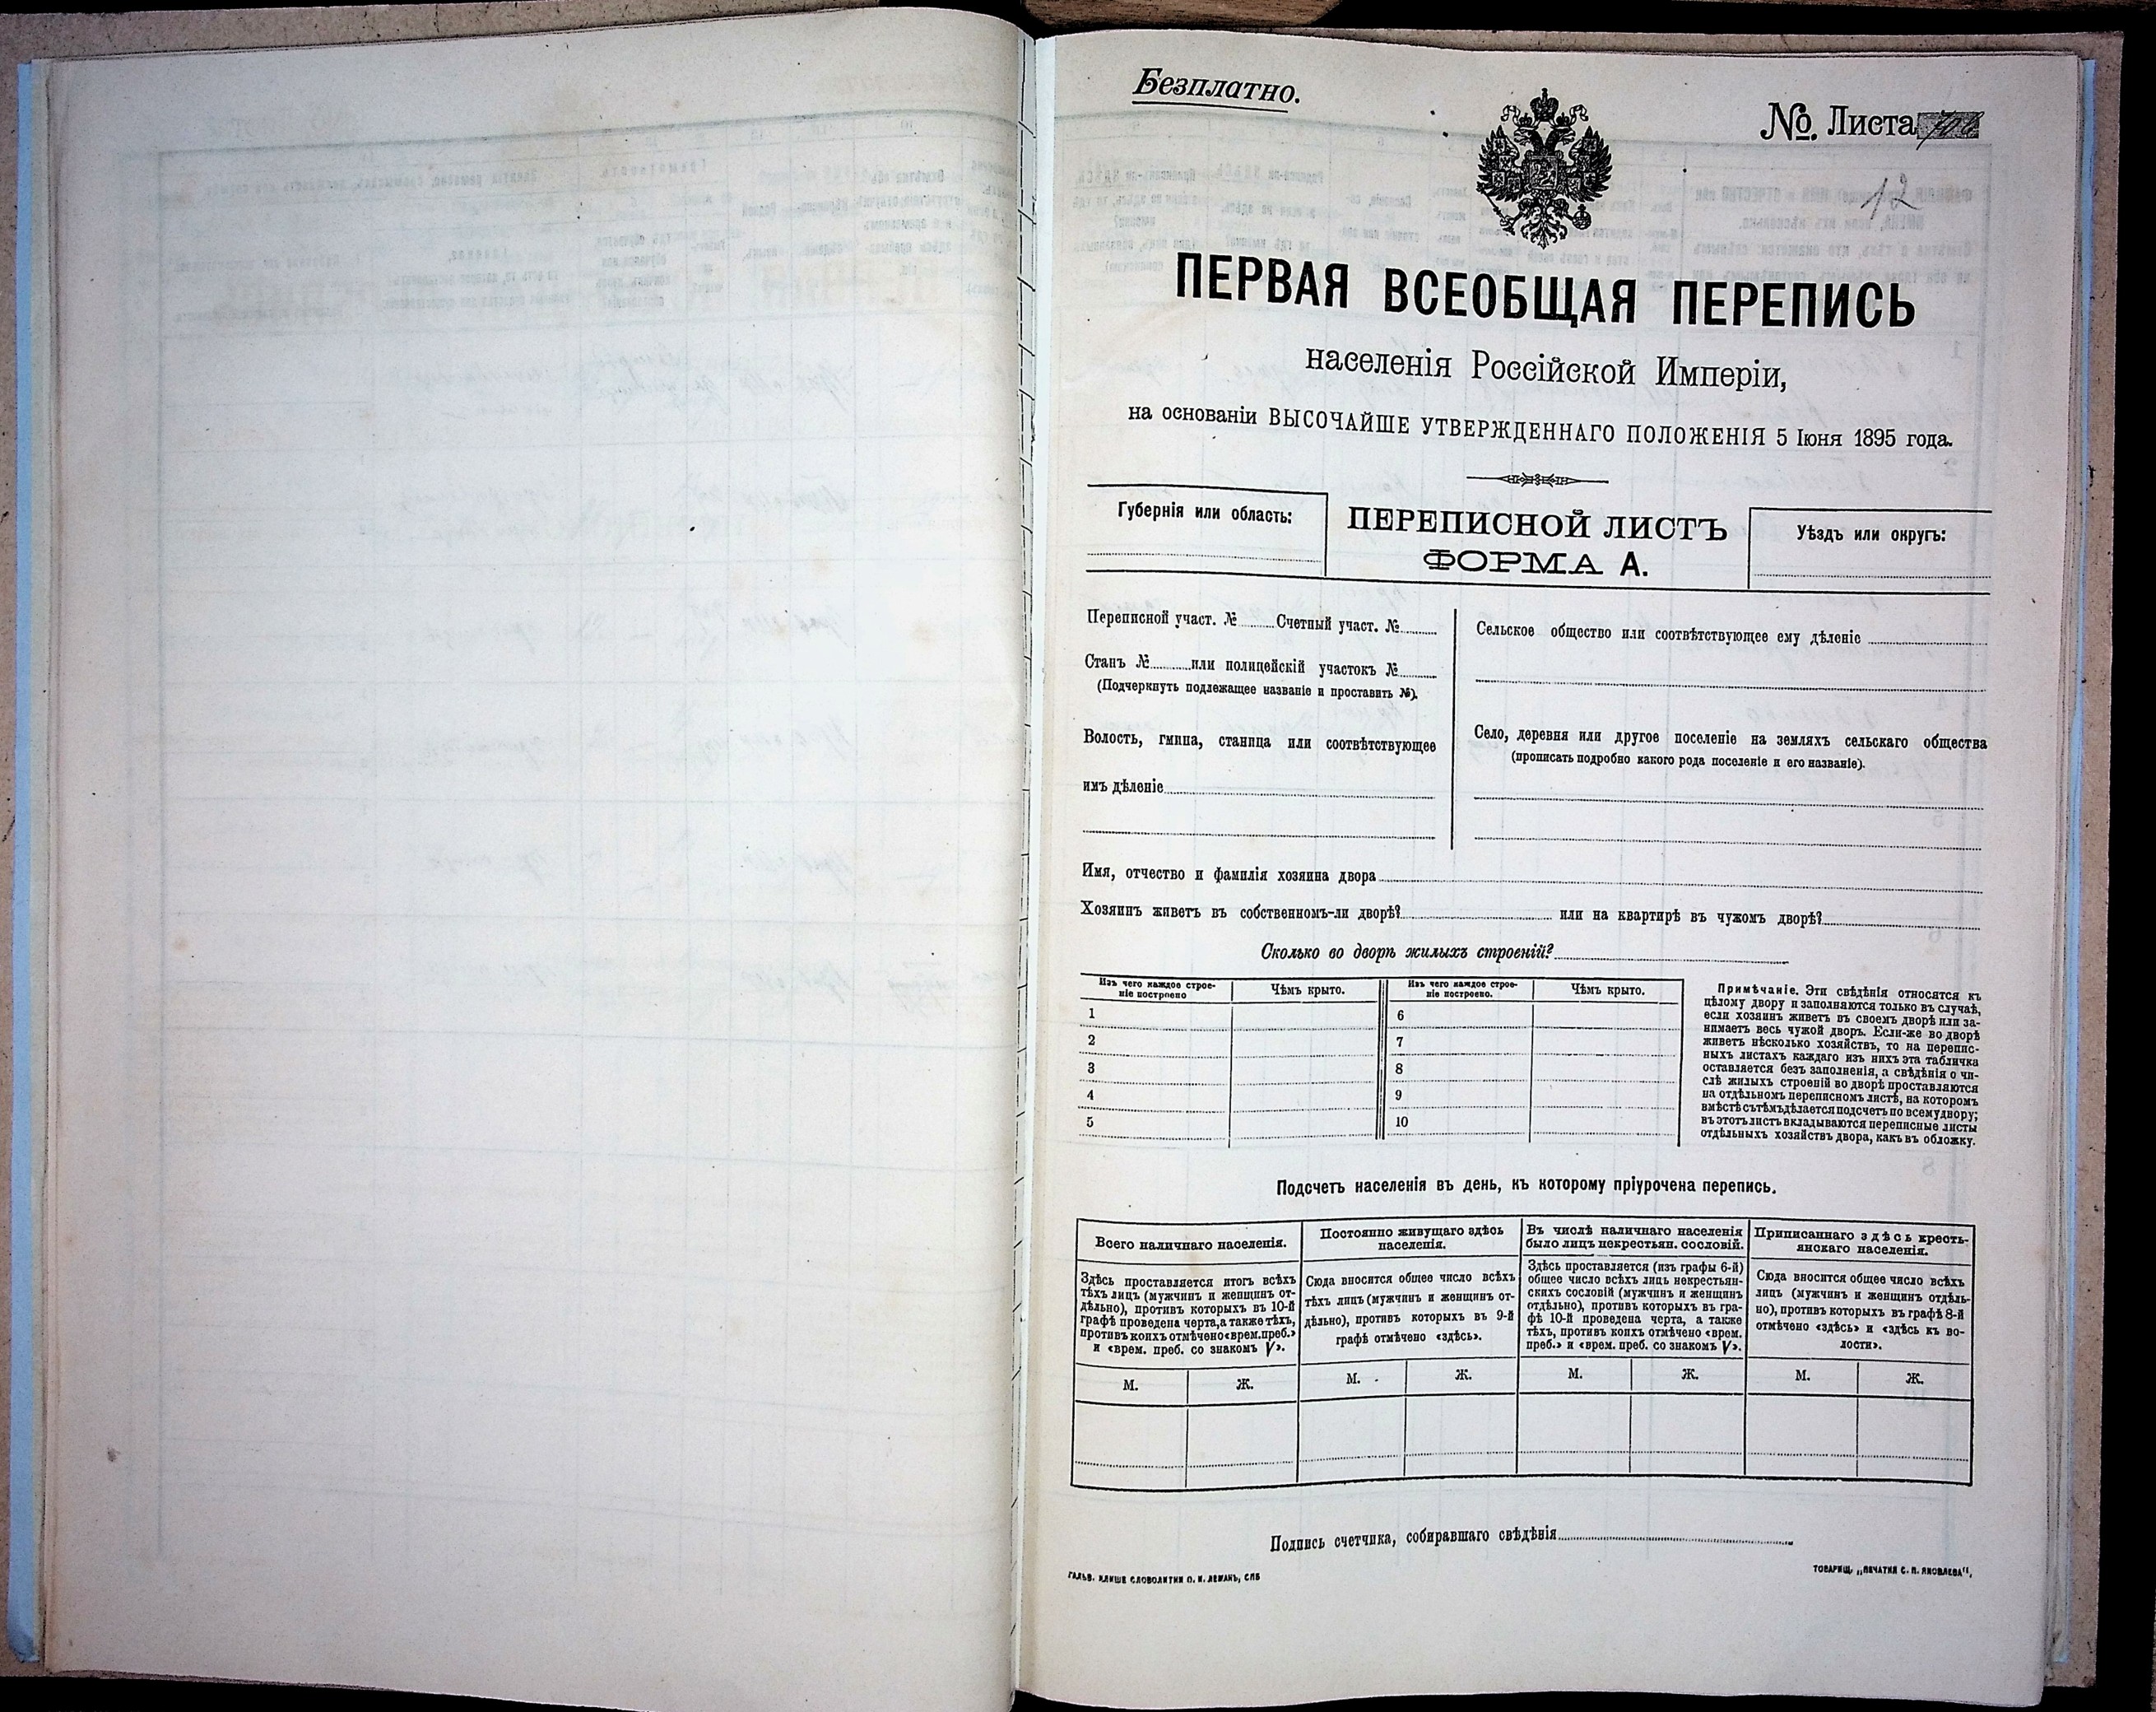 Безплатно.
№ Листа
12
ПЕРВАЯ ВСЕОБЩАЯ ПЕРЕПИСЬ
населенія Россійской Имперіи,
на основаніи ВЫСОЧАЙШЕ УТВЕРЖДЕННАГО ПОЛОЖЕНІЯ 5 Іюня 1895 года.
Губернія или область:
ПЕРЕПИСНОЙ ЛИСТЪ
ФОРМА А.
Уѣздъ или округъ:
Переписной участ. № Счетный участ. №
Станъ № или полицейскій участокъ №
(Подчеркнуть подлежащее названіе и проставить №).
Волость, гмина, станица или соотвѣтствующее
имъ дѣленіе
Сельское общество или соотвѣтствующее ему дѣленіе
Село, деревня или другое поселеніе на земляхъ сельскаго общества
(прописать подробно какого рода поселеніе и его названіе).
Имя, отчество и фамилія хозяина двора
Хозяинъ живетъ въ собственномъ-ли дворѣ? или на квартирѣ въ чужомъ дворѣ?
Сколько во дворѣ жилыхъ строеній?
Изъ чего каждое строе-
ніе построено
Чѣмъ крыто.
Изъ чего каждое строе-
ніе построено.
Чѣмъ крыто.
1 6
2 7
3 8
4 9
5 10
Примѣчаніе. Эти свѣдѣнія относятся къ
цѣлому двору и заполняются только въ случаѣ,
если хозяинъ живетъ въ своемъ дворѣ или за-
нимаетъ весь чужой дворъ. Если-же во дворѣ
живетъ нѣсколько хозяйствъ, то на перепис-
ныхъ листахъ каждаго изъ нихъ эта табличка
оставляется безъ заполненія, а свѣдѣнія о чи-
слѣ жилыхъ строеній во дворѣ проставляются
на отдѣльномъ переписномъ листѣ, на которомъ
вмѣстѣ съ тѣмъ дѣлается подсчетъ по всему двору;
въ этотъ листъ вкладываются переписные листы
отдѣльныхъ хозяйствъ двора, какъ въ обложку.
Подсчетъ населенія въ день, къ которому пріурочена перепись.
Всего наличнаго населенія.
Здѣсь проставляется итогъ всѣхъ
тѣхъ лицъ (мужчинъ и женщинъ от-
дѣльно), противъ которыхъ въ 10-й
графѣ проведена черта, а также тѣхъ,
противъ коихъ отмѣчено «врем. преб.»
и «врем. преб. со знакомъ V».
М. Ж.
Постоянно живущаго здѣсь
населенія.
Сюда вносится общее число всѣхъ
тѣхъ лицъ (мужчинъ и женщинъ от-
дѣльно), противъ которыхъ въ 9-й
графѣ отмѣчено «здѣсь».
М. Ж.
Въ числѣ наличнаго населенія
было лицъ некрестьян. сословій.
Здѣсь проставляется (изъ графы 6-й)
общее число всѣхъ лицъ некрестьян-
скихъ сословій (мужчинъ и женщинъ
отдѣльно), противъ которыхъ въ гра-
фѣ 10-й проведена черта, а также
тѣхъ, противъ коихъ отмѣчено «врем.
преб.» и «врем. преб. со знакомъ V».
М. Ж.
Приписаннаго здѣсь кресть-
янскаго населенія.
Сюда вносится общее число всѣхъ
лицъ (мужчинъ и женщинъ отдѣль-
но), противъ которыхъ въ графѣ 8-й
отмѣчено «здѣсь» и «здѣсь къ во-
лости».
М. Ж.
Подпись счетчика, собиравшаго свѣдѣнія
ГАЛЬВ. КЛИШЕ СЛОВОЛИТНИ О. И. ЛЕМАНЪ, СПБ
ТОВАРИЩ. „ПЕЧАТНЯ С. П. ЯКОВЛЕВА“,